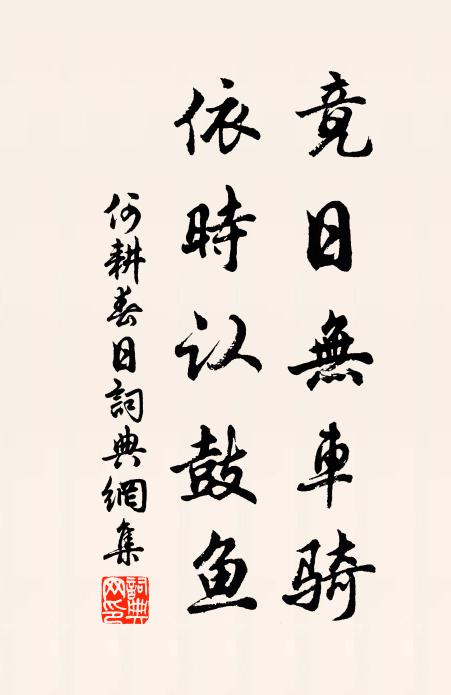 竟日無車骑
依時认鼓鱼
何耕春日詞典網集
詞典網印